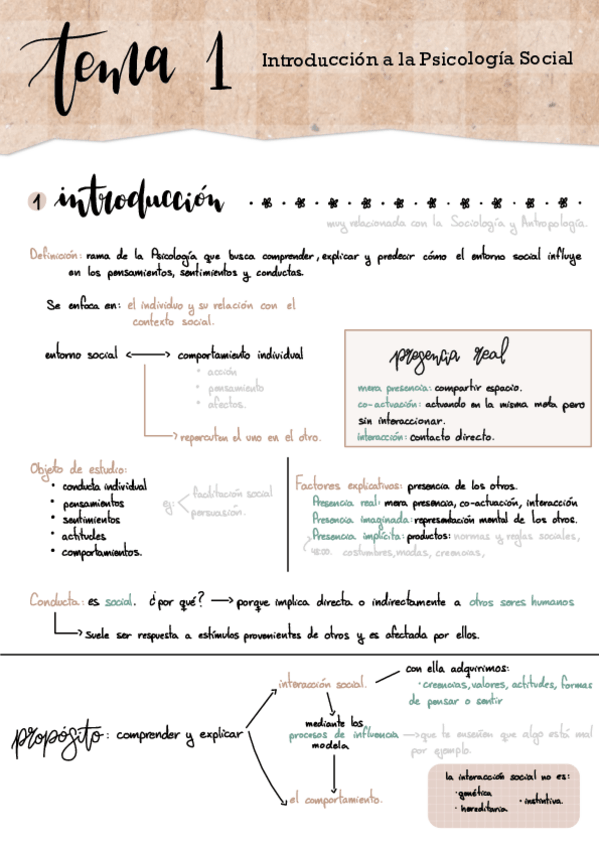 tema 1
Introducción a la Psicología Social
1 introducción
muy relacionada con la Sociología y Antropología.
Definición: rama de la Psicología que busca comprender, explicar y predecir cómo el entorno social influye
en los pensamientos, sentimientos y conductas.
Se enfoca en: el individuo y su relación con el
contexto social.
entorno social <-> comportamiento individual
• acción
• pensamiento
• afectos.
repercuten el uno en el otro.
presencia real
mera presencia: compartir espacio.
co-actuación: actuando en la misma meta pero
sin interaccionar.
interacción: contacto directo.
Objeto de estudio:
• conducta individual
• pensamientos
• sentimientos
• actitudes
• comportamientos.
ej: < facilitación social
persuasión.
Factores explicativos: presencia de los otros.
Presencia real: mera presencia, co-actuación, interacción
Presencia imaginada: representación mental de los otros.
Presencia implícita: productos: normas y reglas sociales,
costumbres, modas, creencias,
Conducta: es social. ¿por qué? → porque implica directa o indirectamente a otros seres humanos
suele ser respuesta a estímulos provenientes de otros y es afectada por ellos.
propósito: comprender y explicar
interacción social.
con ella adquirimos:
· creencias, valores, actitudes, formas
de pensar o sentir
mediante los
procesos de influencia → que te enseñen que algo está mal
por ejemplo.
modela
el comportamiento.
la interacción social no es:
· genética
· instintiva.
· hereditaria